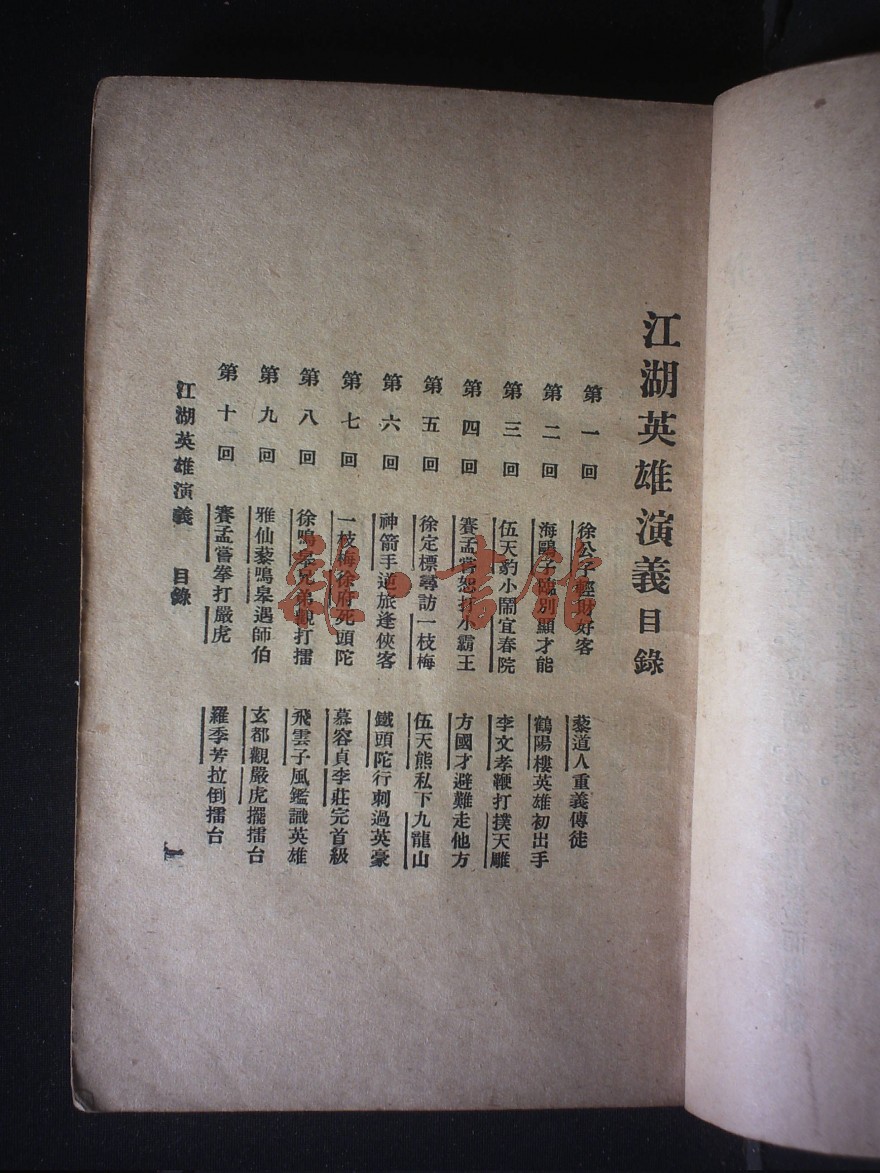 江湖英雄演義目錄
第一回 徐公子輕財好客 藜道人重義傳徒
第二回 海鷗子臨別顯才能 鶴陽樓英雄初出手
第三回 伍天豹小鬧宜春院 李文孝鞭打撲天雕
第四回 賽孟嘗怒打小霸王 方國才避難走他方
第五回 徐定標尋訪一枝梅 伍天熊私下九龍山
第六回 神箭手逆旅逢俠客 鐵頭陀行刺過英豪
第七回 一枝梅徐府死頭陀 慕容貞李莊完首級
第八回 徐鳴皋兄弟觀打擂 飛雲子風鑑識英雄
第九回 雅仙藜鳴皋遇師伯 玄都觀嚴虎擺擂台
第十回 賽孟嘗拳打嚴虎 羅季芳拉倒擂台
江湖英雄演義 目錄 一
雜·書館